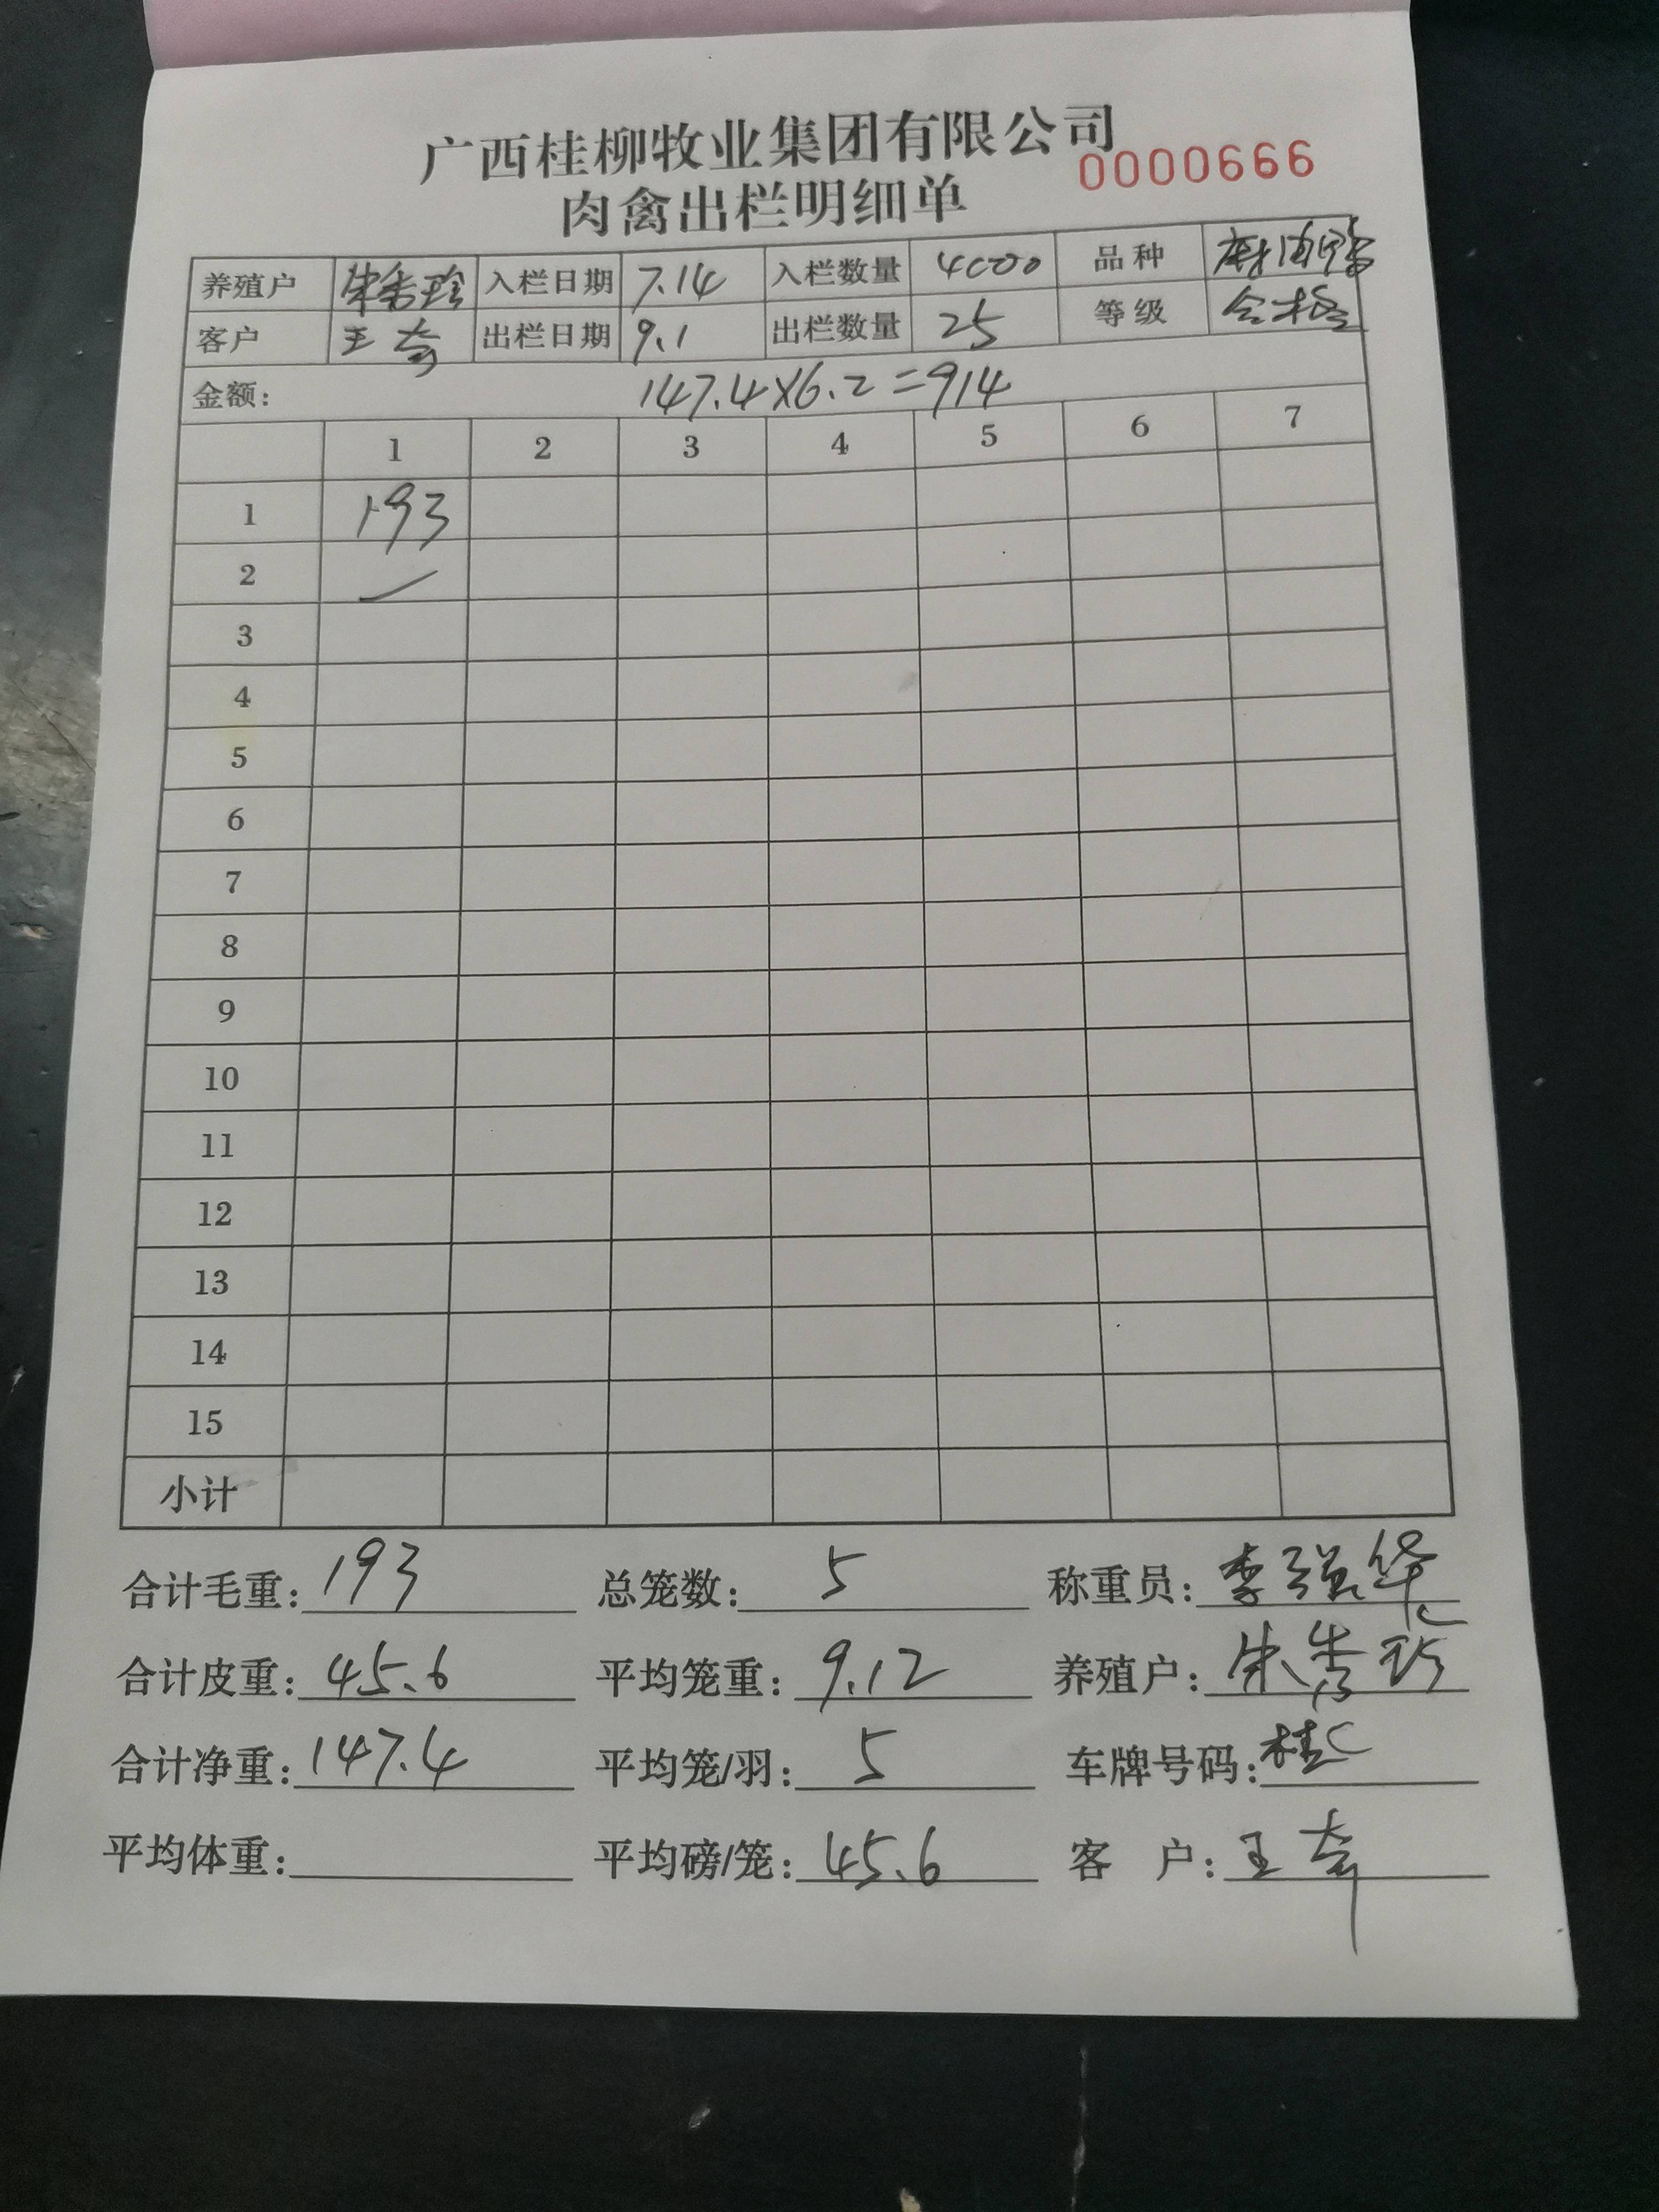 广西桂柳牧业集团有限公司
0000666
肉禽出栏明细单
养殖户 朱秀珍 入栏日期 7.14 入栏数量 4000 品种
客户 王奇 出栏日期 9.1 出栏数量 25 等级 合格
金额: 147.4X6.2=914
1 2 3 4 5 6 7
1 193
2
3
4
5
6
7
8
9
10
11
12
13
14
15
小计
合计毛重: 193 总笼数: 5 称重员: 李强华
合计皮重: 45.6 平均笼重: 9.12 养殖户: 朱秀珍
合计净重: 147.4 平均笼/羽: 5 车牌号码: 桂C
平均体重: 平均磅/笼: 45.6 客 户: 王奇